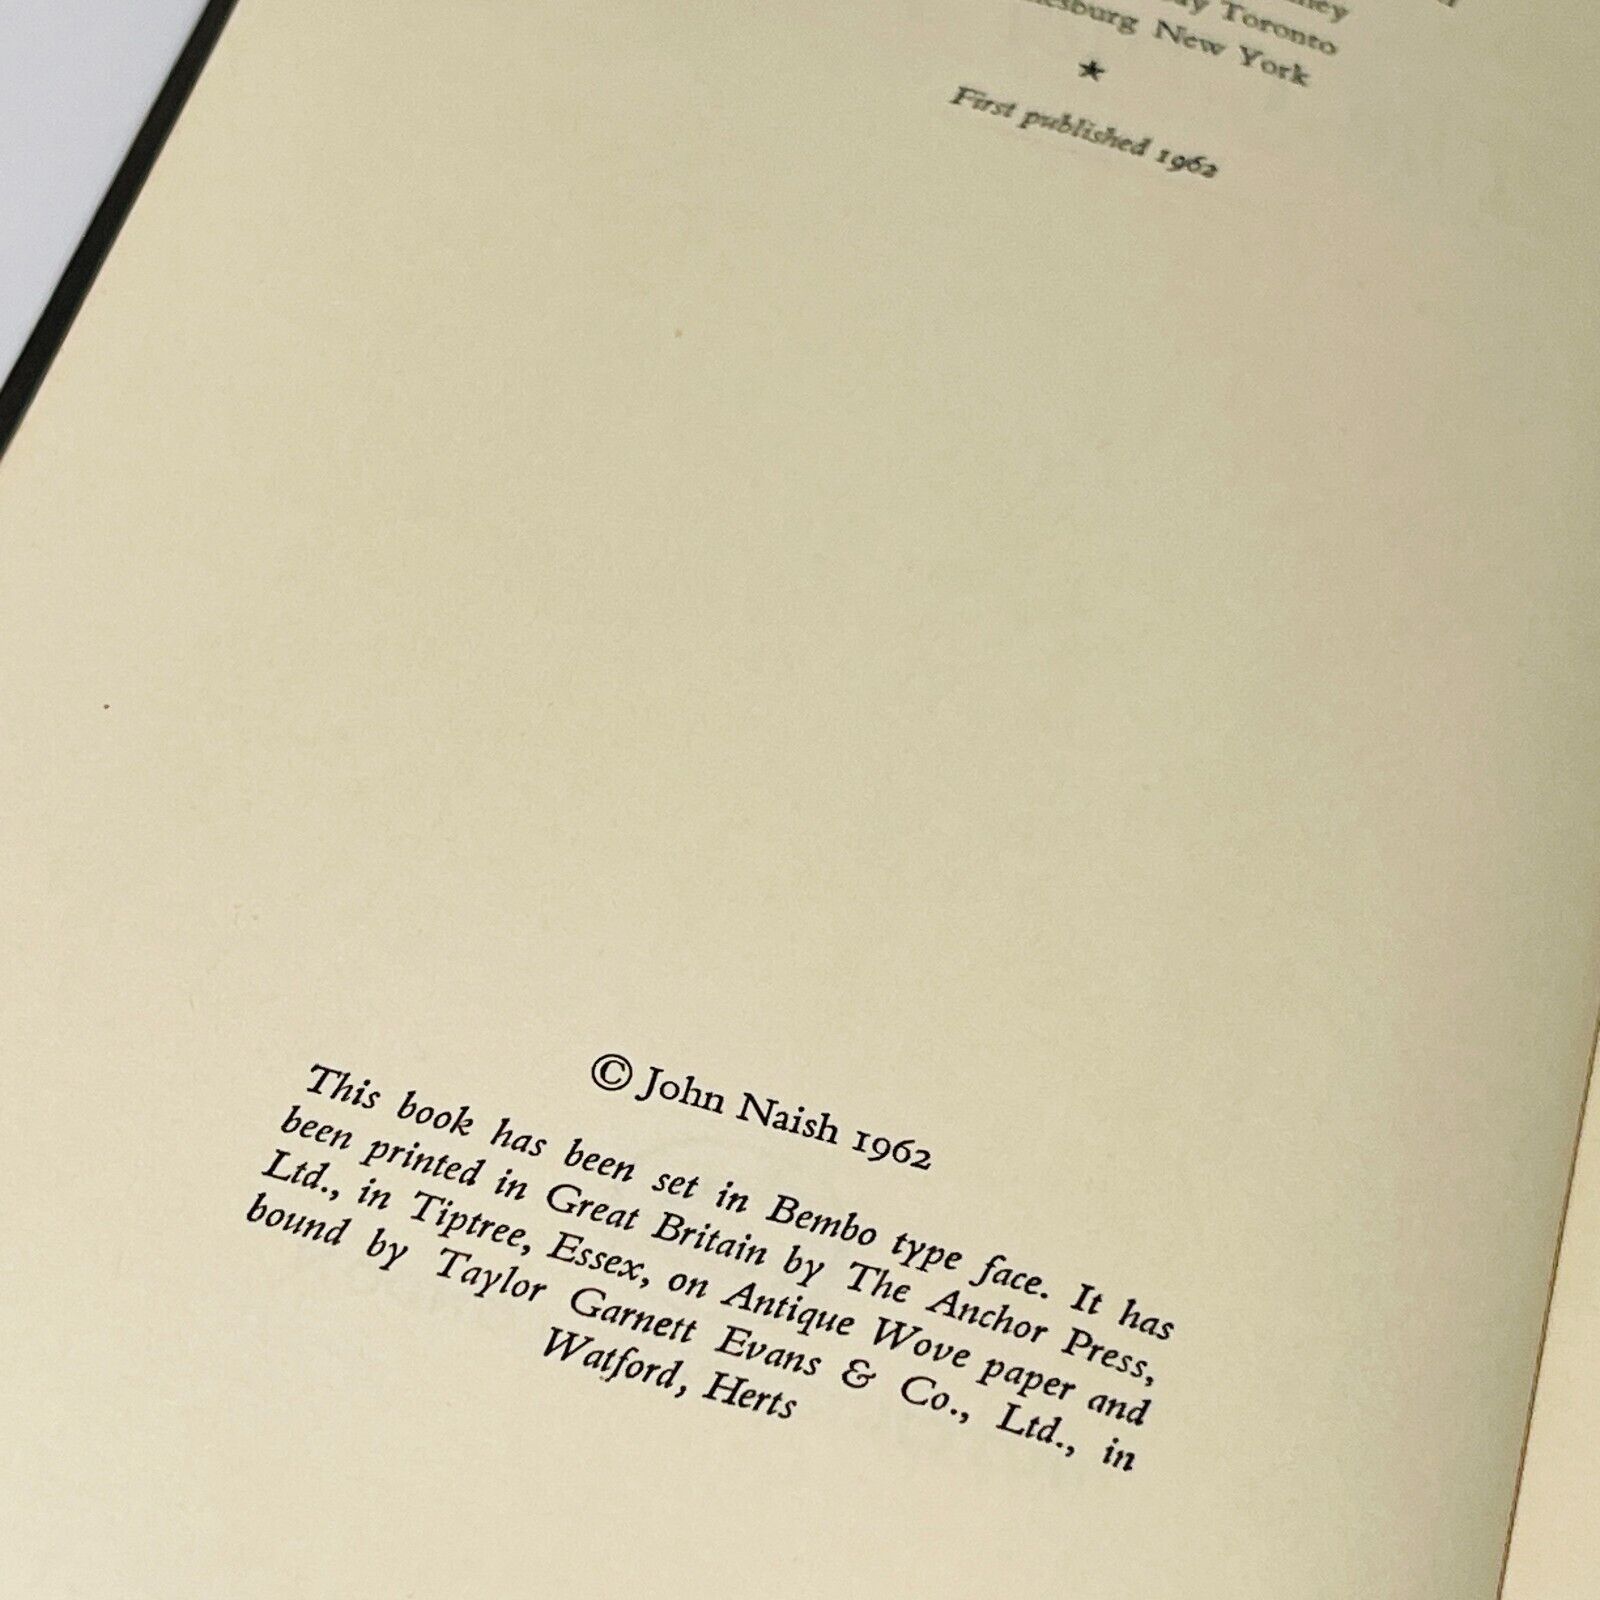 Toronto
New York
★
First published 1962
© John Naish 1962
This book has been set in Bembo type face. It has
been printed in Great Britain by The Anchor Press,
Ltd., in Tiptree, Essex, on Antique Wove paper and
bound by Taylor Garnett Evans & Co., Ltd., in
Watford, Herts